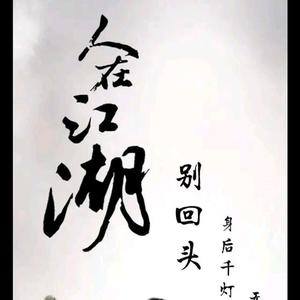 人在江湖
别回头
身后千灯